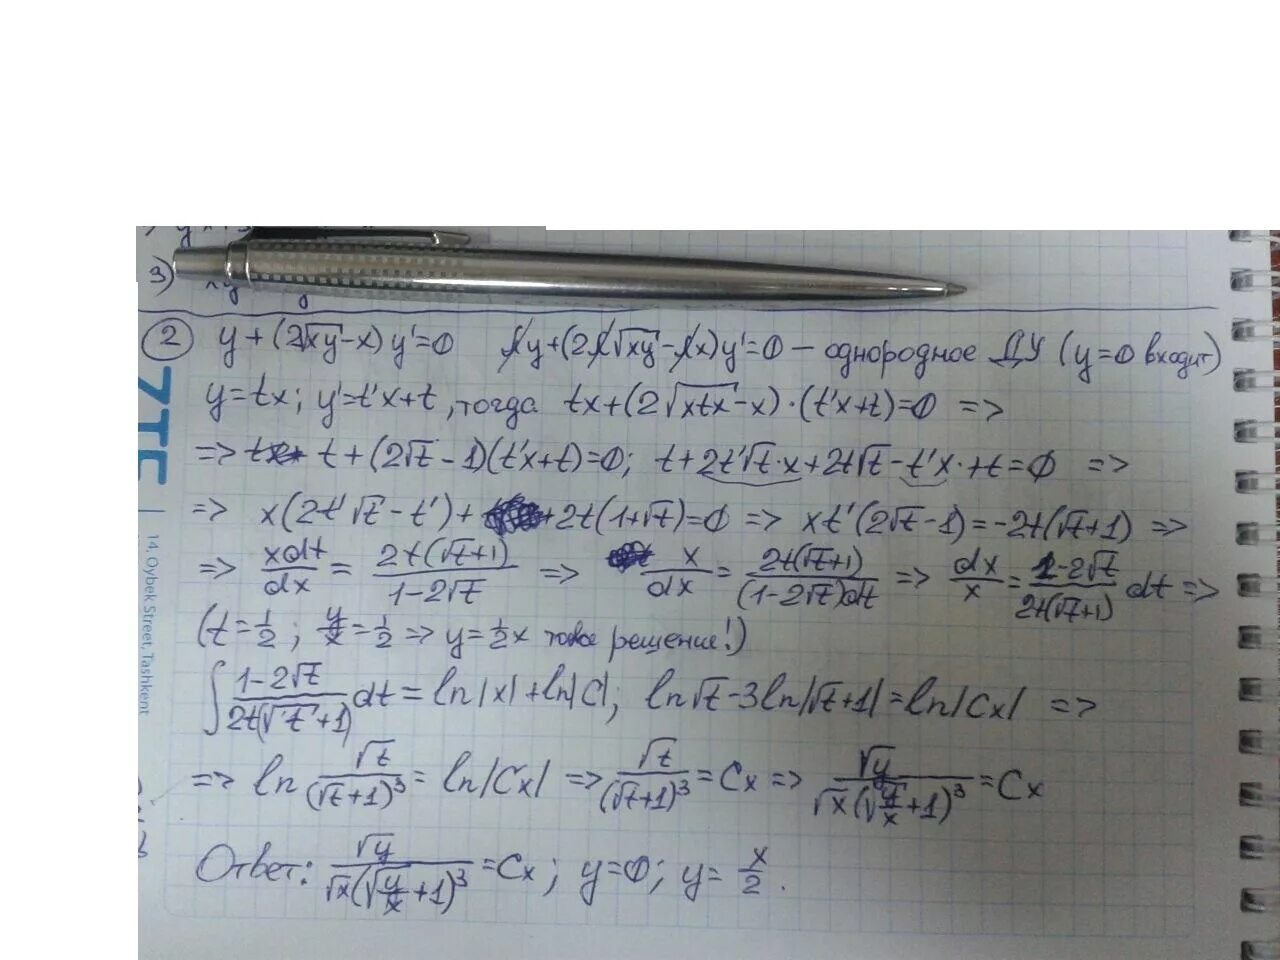 3)
2 y+(2√xy-x)y'=0 λy+(2λ√xy-λx)y'=0 – однородное ДУ (y=0 входит)
y=tx; y'=t'x+t, тогда tx+(2√xtx-x)·(t'x+t)=0 =>
=> t+(2√t-1)(t'x+t)=0; t+2t'√t·x+2t√t-t'x·+t=0 =>
=> x(2t'√t-t')+ +2t(1+√t)=0 => xt'(2√t-1)=-2t(√t+1) =>
=> xdt/dx = 2t(√t+1)/(1-2√t) => x/dx = 2t(√t+1)/((1-2√t)dt) => dx/x = (1-2√t)/(2t(√t+1)) dt =>
(t=1/2; y/x=1/2 => y=1/2x тоже решение!)
∫(1-2√t)/(2t(√t+1)) dt = ln|x|+ln|C|; ln√t-3ln|√t+1|=ln|Cx| =>
=> ln √t/(√t+1)³ = ln|Cx| => √t/(√t+1)³ = Cx => √y/(√x(√(y/x)+1)³) = Cx
Ответ: √y/(√x(√(y/x)+1)³) = Cx; y=0; y= x/2.
ZTE
14, Oybek Street, Tashkent